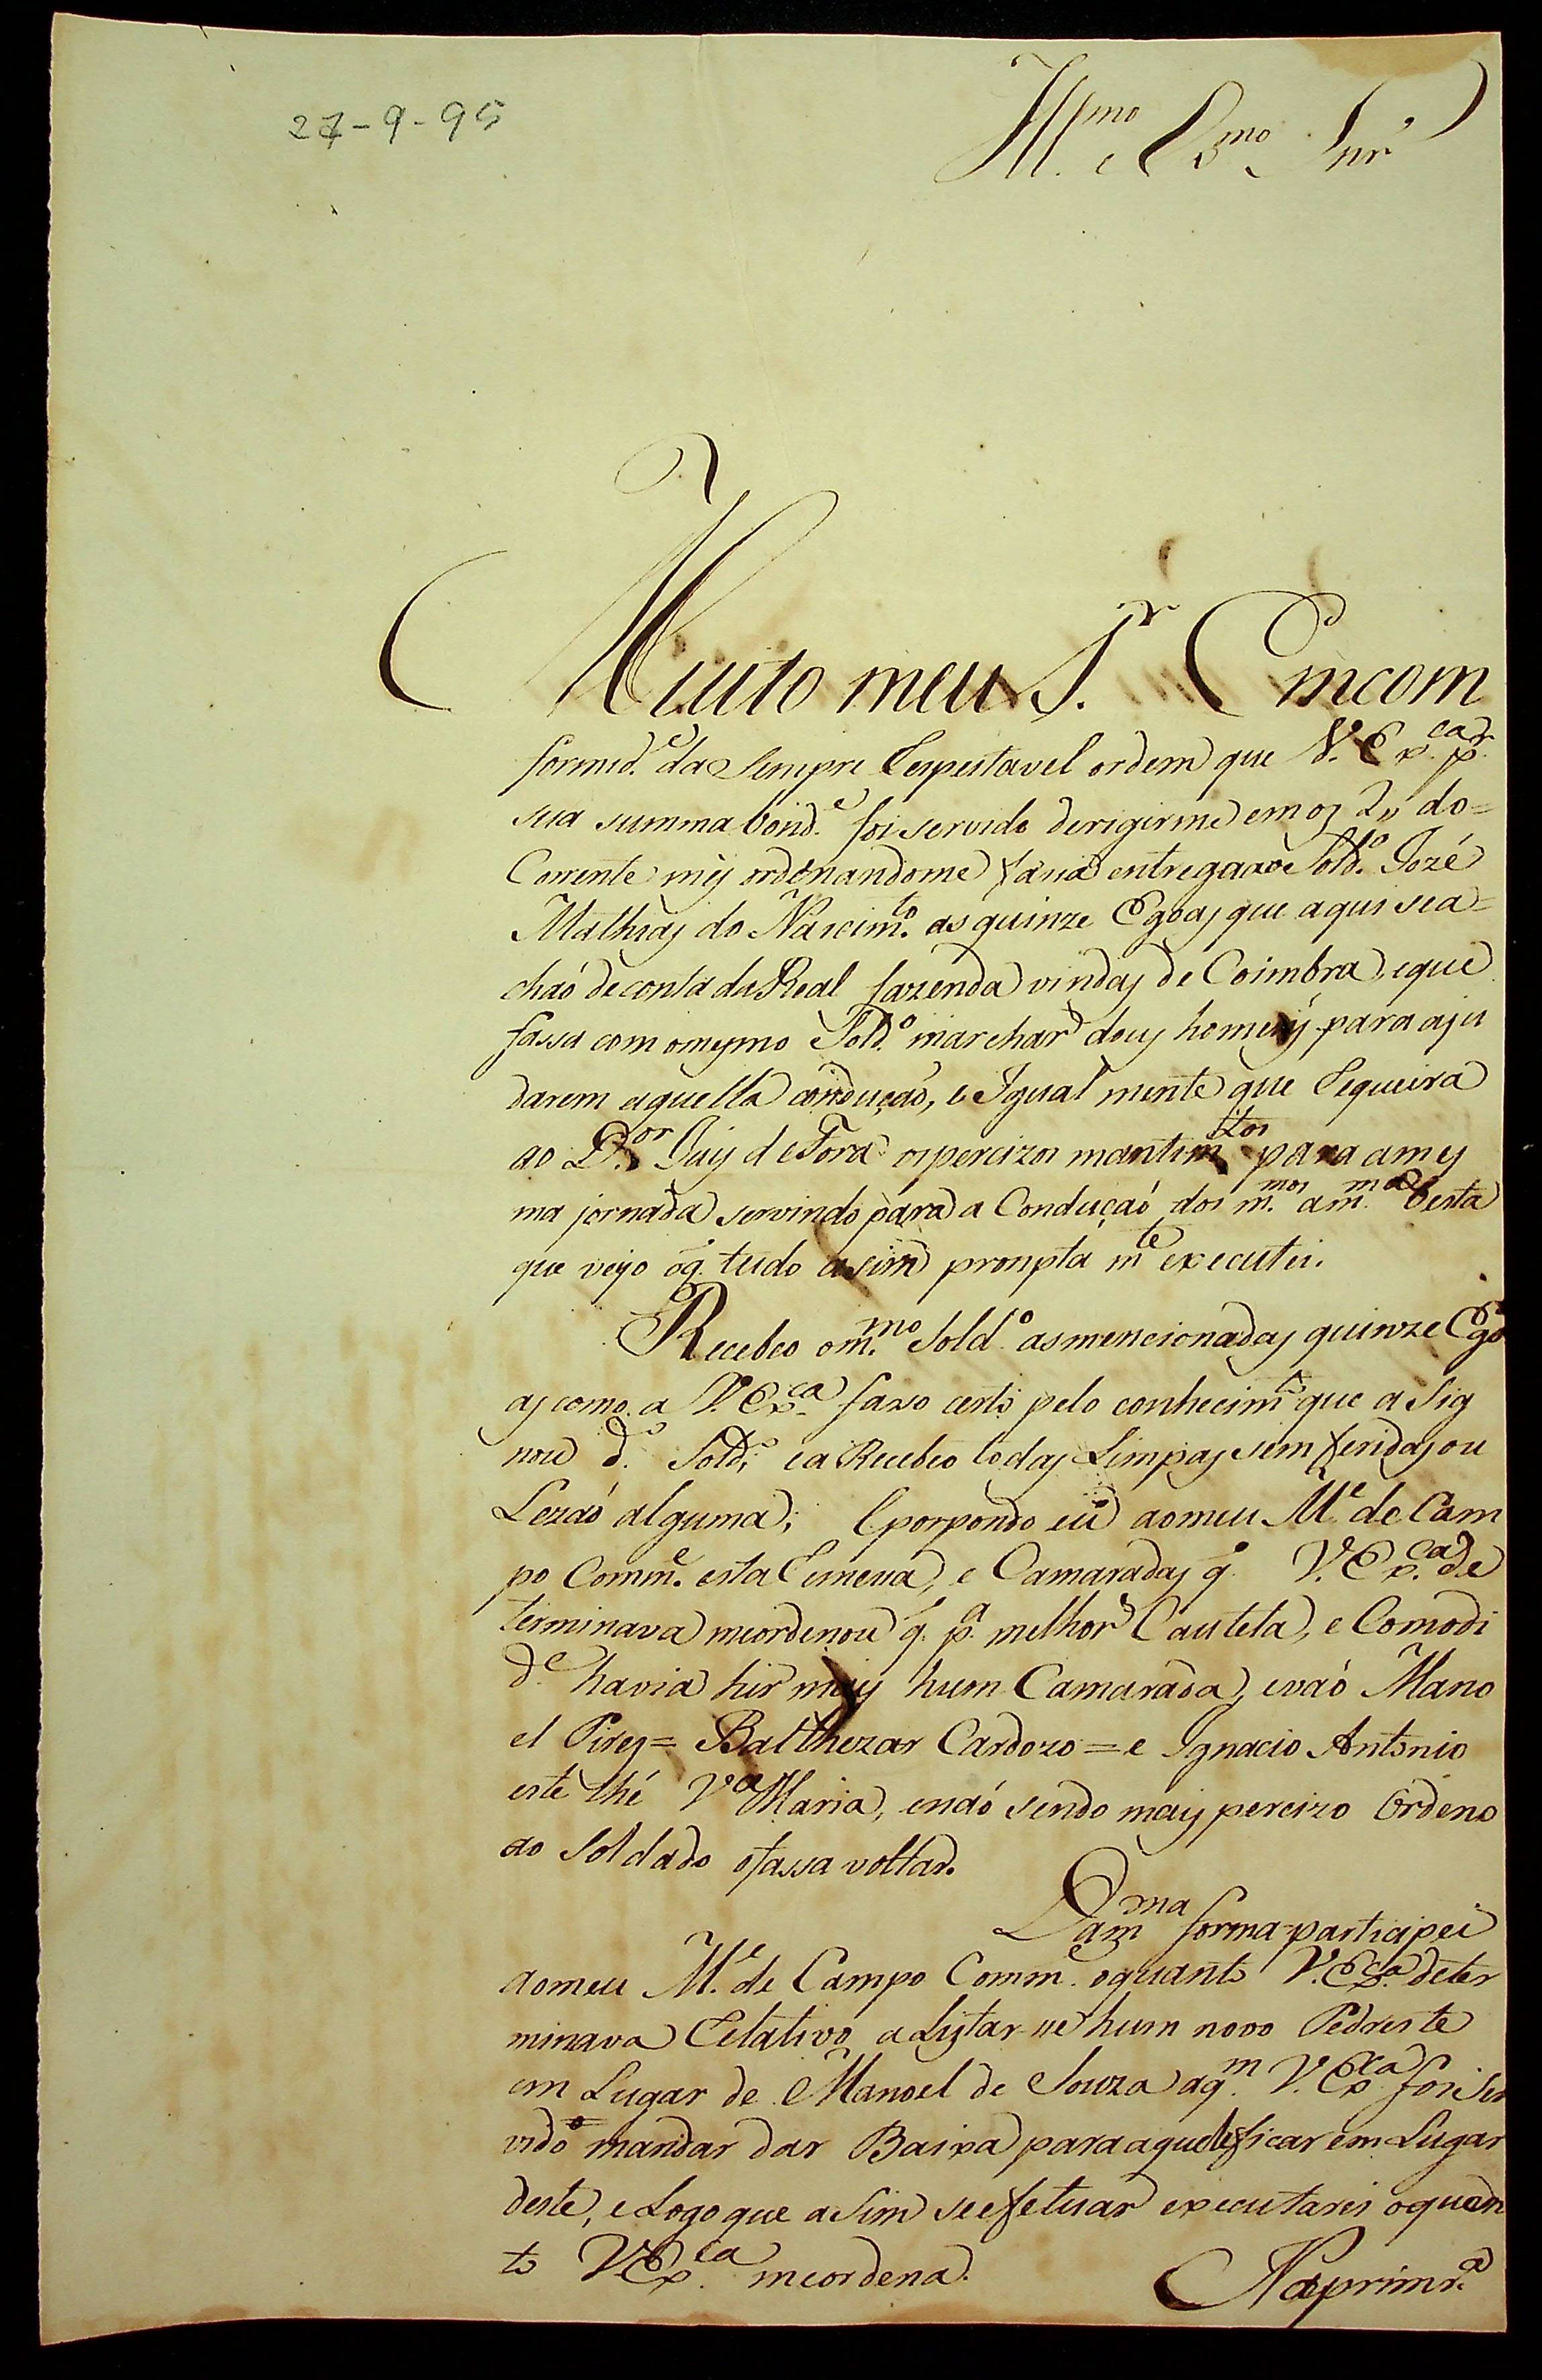 27-9-95
Ill.mo e Ex.mo Snr'
Muito meu S.r Em com
formid.e da sempre Respeitavel ordem que V. Ex.ca p.r
sua summa bond.e foi servido derigirme em os 2,, do=
Corrente mes ordenandome faria entrega ao Sold.o Jozé
Mathias do Nascim.to as quinze Egoas que aqui sea=
chaó de conta da Real fazenda vindas de Coimbra, e que
fassa com o mesmo Sold.o marchar dous homens para aju
darem aquella conduçaó, e Igual mente que Requeira
ao D.or Juis de Fora os percizos mantim.tos para a mes
ma jornada servindo para a Conduçaó dos m.mos a m.ma besta
que veyo o q. tudo asim prompta m.te executei.
Recebeo o m.mo Sold.o as mencionadas quinze Ego
as como a V. Ex.ca faso certo pelo conhecim.to que a Sig
nou d.o Sold.o, e a Recebeo todas Limpas sem feridas ou
Lezaó alguma; Eporpondo eu ao meu M.e de Cam
po Comm.e esta Remeua, e Camaradas q. V. Ex.ca de
terminava meordenou q. p.a melhor Cautela, e Comodi
d.e havia hir mais hum Camarada, e vaó Mano
el Pires = Balthezar Cardozo = e Ignacio Antonio
este thé V.a Maria, enaó sendo mais percizo Ordeno
ao Soldado o fassa voltar.
Da m.ma forma participei
ao meu M.e de Campo Comm. o quanto V. Ex.ca deter
minava Relativo a Listar-se hum novo Pedreste
em Lugar de Manoel de Souza a q.m V. Ex.ca foi ser
vido mandar dar Baixa para aquele ficar em Lugar
deste, e Logo que asim se efetuar executarei o quan
to V. Ex.ca meordena.
Na primr.a